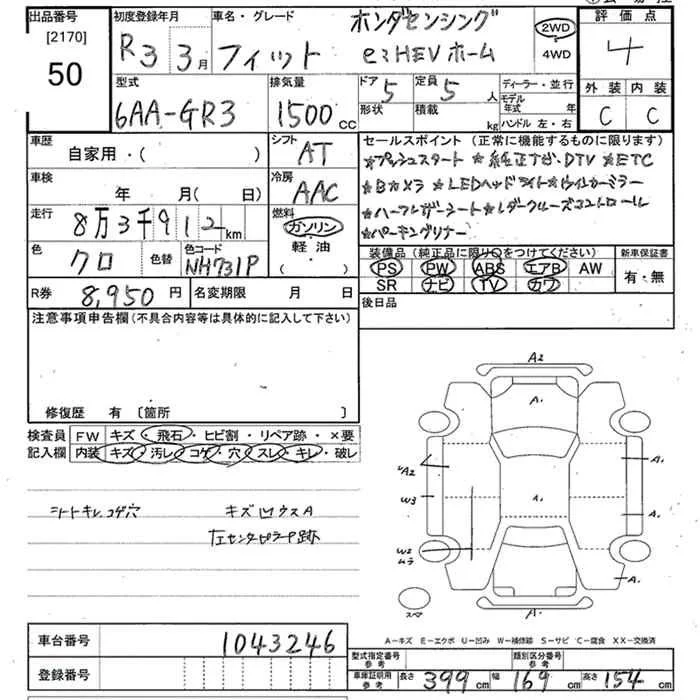 出品番号
[2170]
50
初度登録年月
R3 3月
車名・グレード
フィット
ホンダセンシング
e:HEV ホーム
2WD
4WD
評価点
4
外装 内装
C C
型式
6AA-GR3
排気量
1500 cc
ドア 5
形状
定員 5 人
積載 kg
ディーラー・並行
モデル年式 年
ハンドル 左・右
車歴
自家用・( )
シフト
AT
車検
年 月( 日)
冷房
AAC
走行
8万3千912 km
燃料
ガソリン
軽油
・( )
色
クロ
色替
色コード
NH731P
R券 8,950 円
名変期限 月 日
セールスポイント (正常に機能するものに限ります)
★プッシュスタート ★純正ナビ.DTV ★ETC
★Bカメラ ★LEDヘッドライト ★ウインカーミラー
★ハーフレザーシート ★レーダークルーズコントロール
★パーキングソナー
装備品 (純正品に限り○をつけてください)
PS PW ABS エアB AW
SR ナビ TV カワ
新車保証書
有・無
後日品
注意事項申告欄 (不具合内容等は具体的に記入して下さい)
修復歴 有 〔箇所 〕
検査員記入欄
FW キズ・飛石・ヒビ割・リペア跡・×要
内装 キズ・汚レ・コゲ・穴・スレ・キレ・破レ
シートキレ、コゲ穴
キズ凹ウスA
左センタピラーP跡
A2
A.
A.
UA2
W3
A.
A.
W2
ムラ
A.
スペア
A-キズ E-エクボ U-凹み W-補修跡 S-サビ C-腐食 XX-交換済
車台番号 1043246
登録番号
型式指定番号 参考
類別区分番号 参考
車庫証明用 参考 長さ 399 cm 幅 169 cm 高さ 154 cm